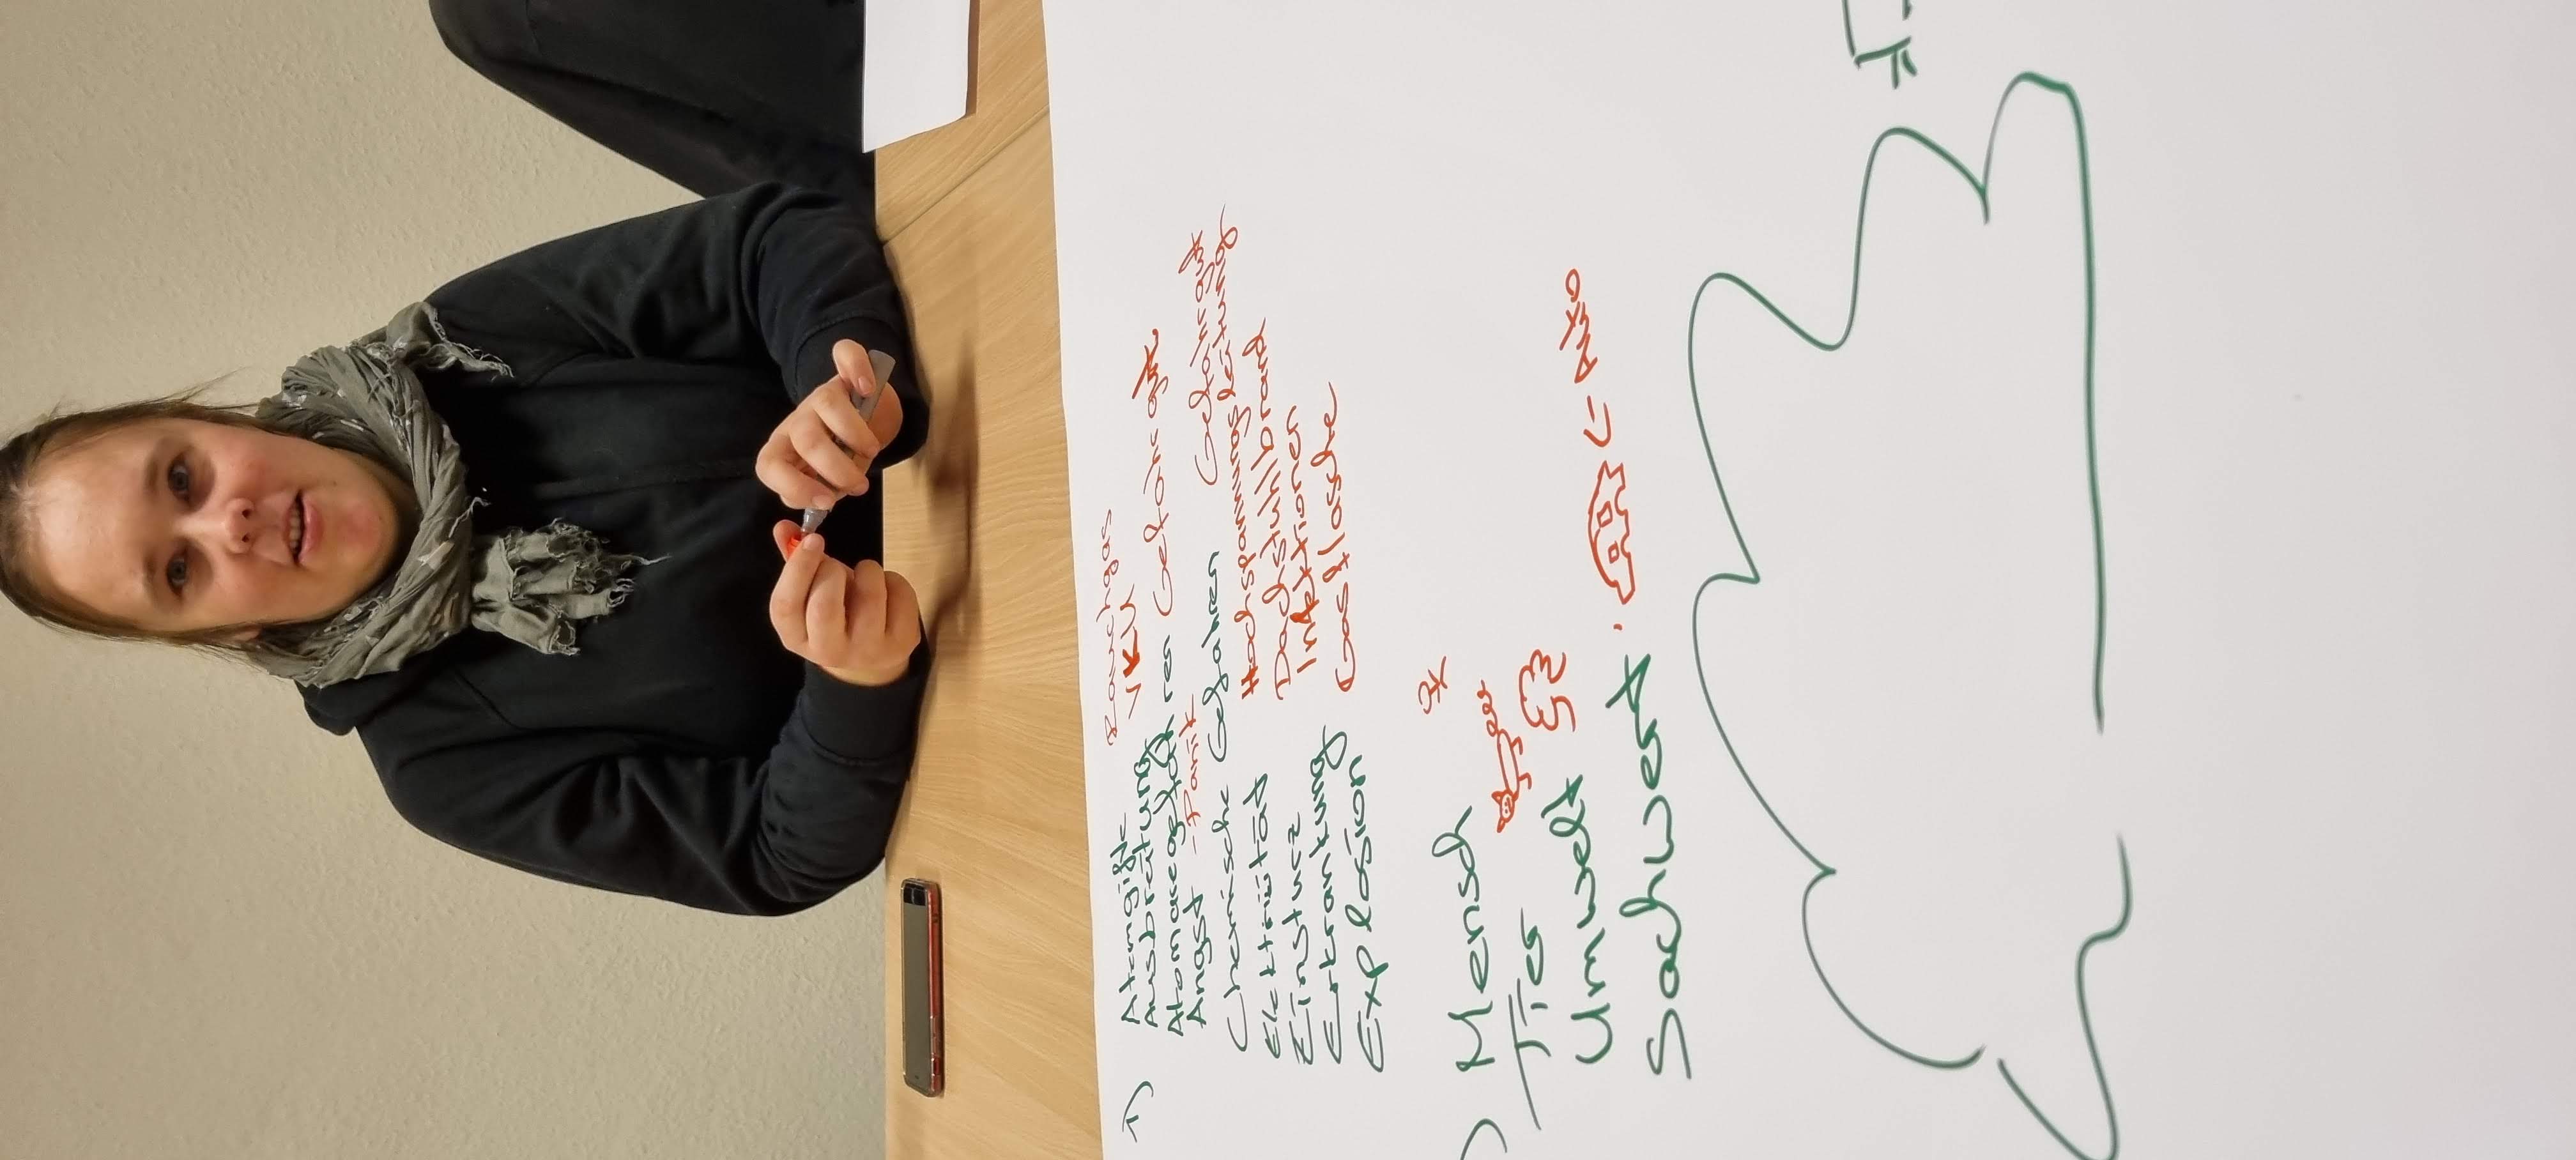 Rauchgas
1) Atemgifte VKU
Ausbreitung
Atomare Gefahren Gefahrgut
Angst - Panik
Chemische Gefahren Gefahrgut
Elektrizität Hochspannungsleitung
Einsturz Dachstuhlbrand
Erkrankung Infektionen
Explosion Gasflasche
Mensch
Tier
Umwelt
Sachwert <- Auto